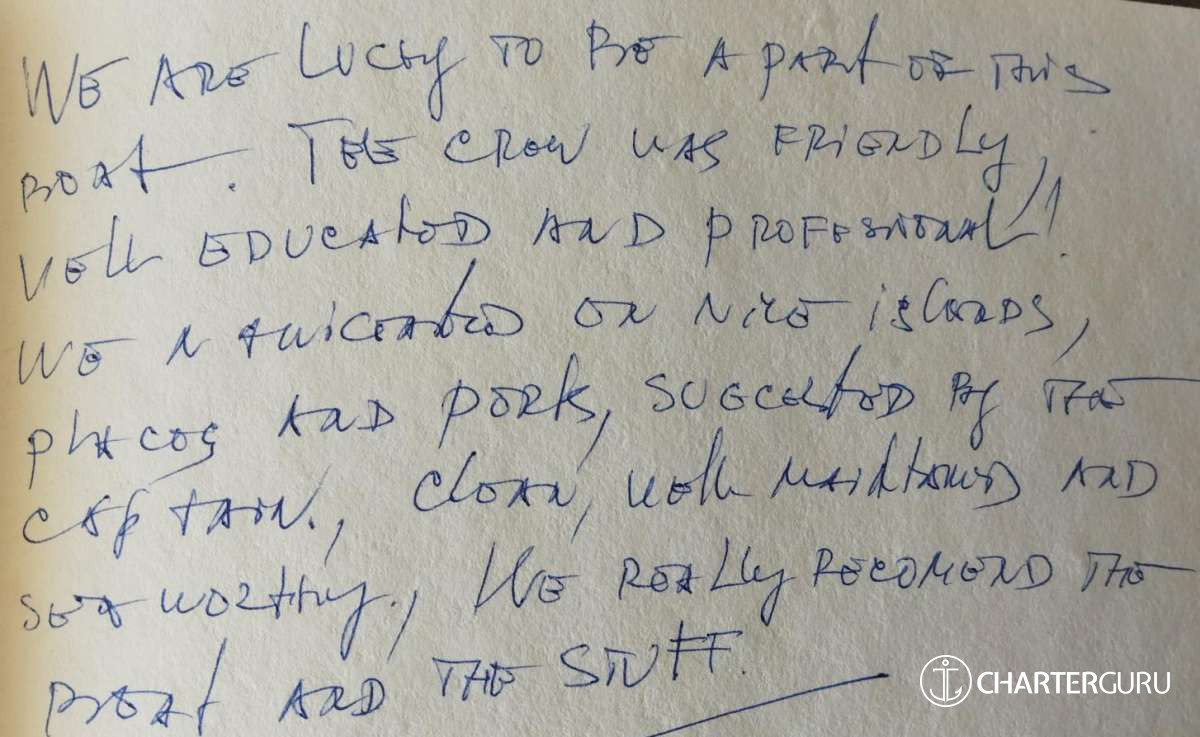 WE ARE LUCKY TO BE A PART OF THIS
BOAT. THE CREW WAS FRIENDLY,
WELL EDUCATED AND PROFESIONAL!
WE NAVIGATED ON NICE ISLANDS,
PLACES AND PORTS, SUGGESTED BY THE
CAPTAIN., CLEAN, WELL MAINTAINED AND
SEAWORTHY., WE REALLY RECOMEND THE
BOAT AND THE STUFF.
CHARTERGURU